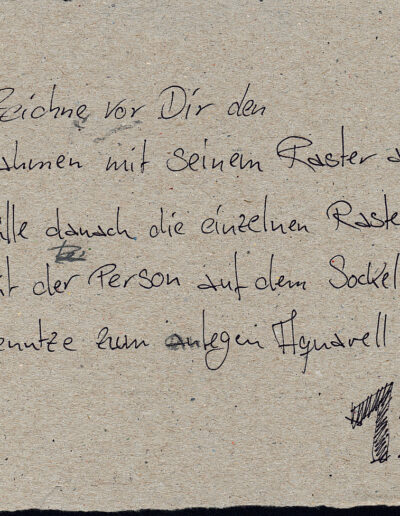 Zeichne vor Dir den
ahmen mit seinem Raster a
ülle danach die einzelnen Raste
it der Person auf dem Sockel
enutze zum anlegen Aquarell
1